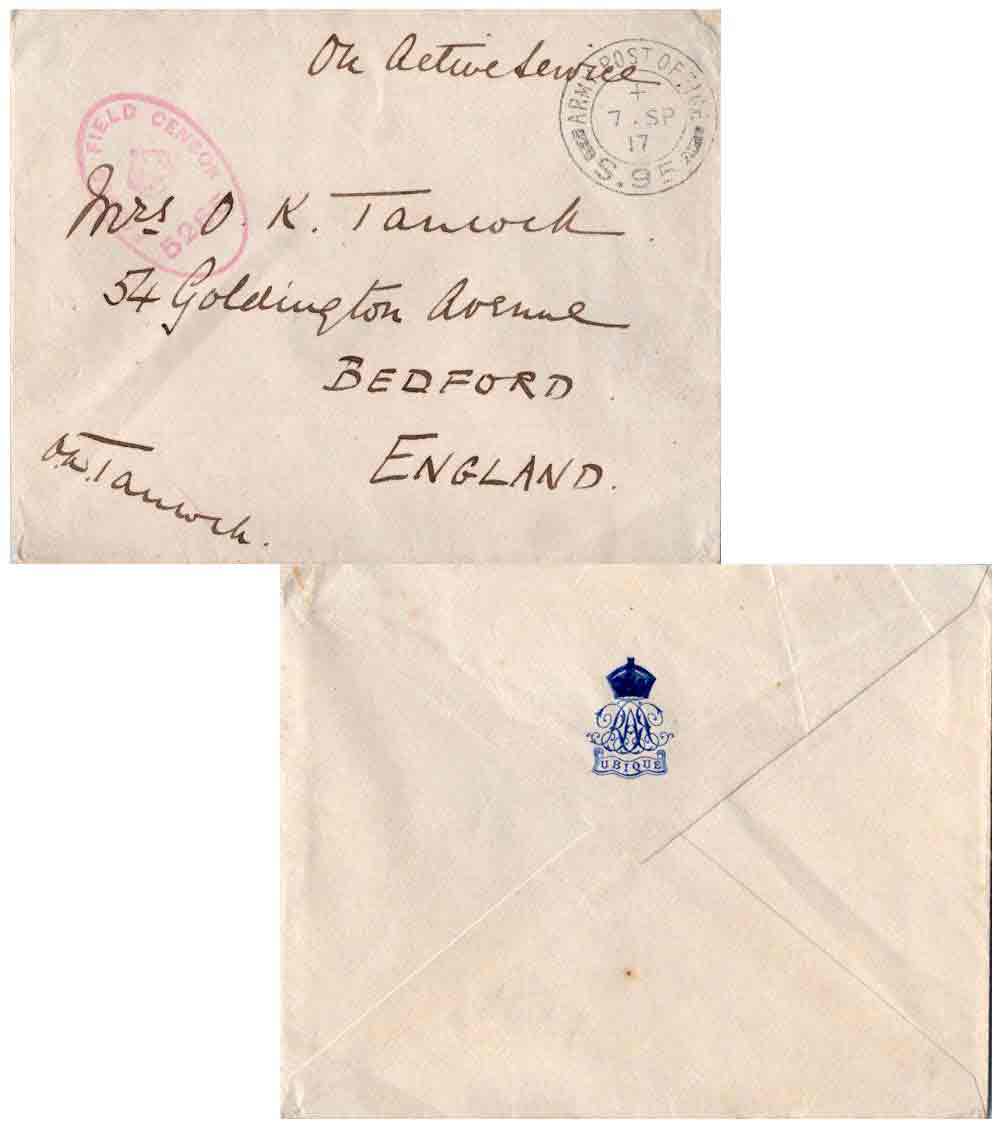 On Active Service
ARMY POST OFFICE
+
7 . SP
17
S.95
FIELD CENSOR
526
Mrs O. K. Tancock.
54 Goldington Avenue
BEDFORD.
ENGLAND.
O.K. Tancock.
RAA
UBIQUE